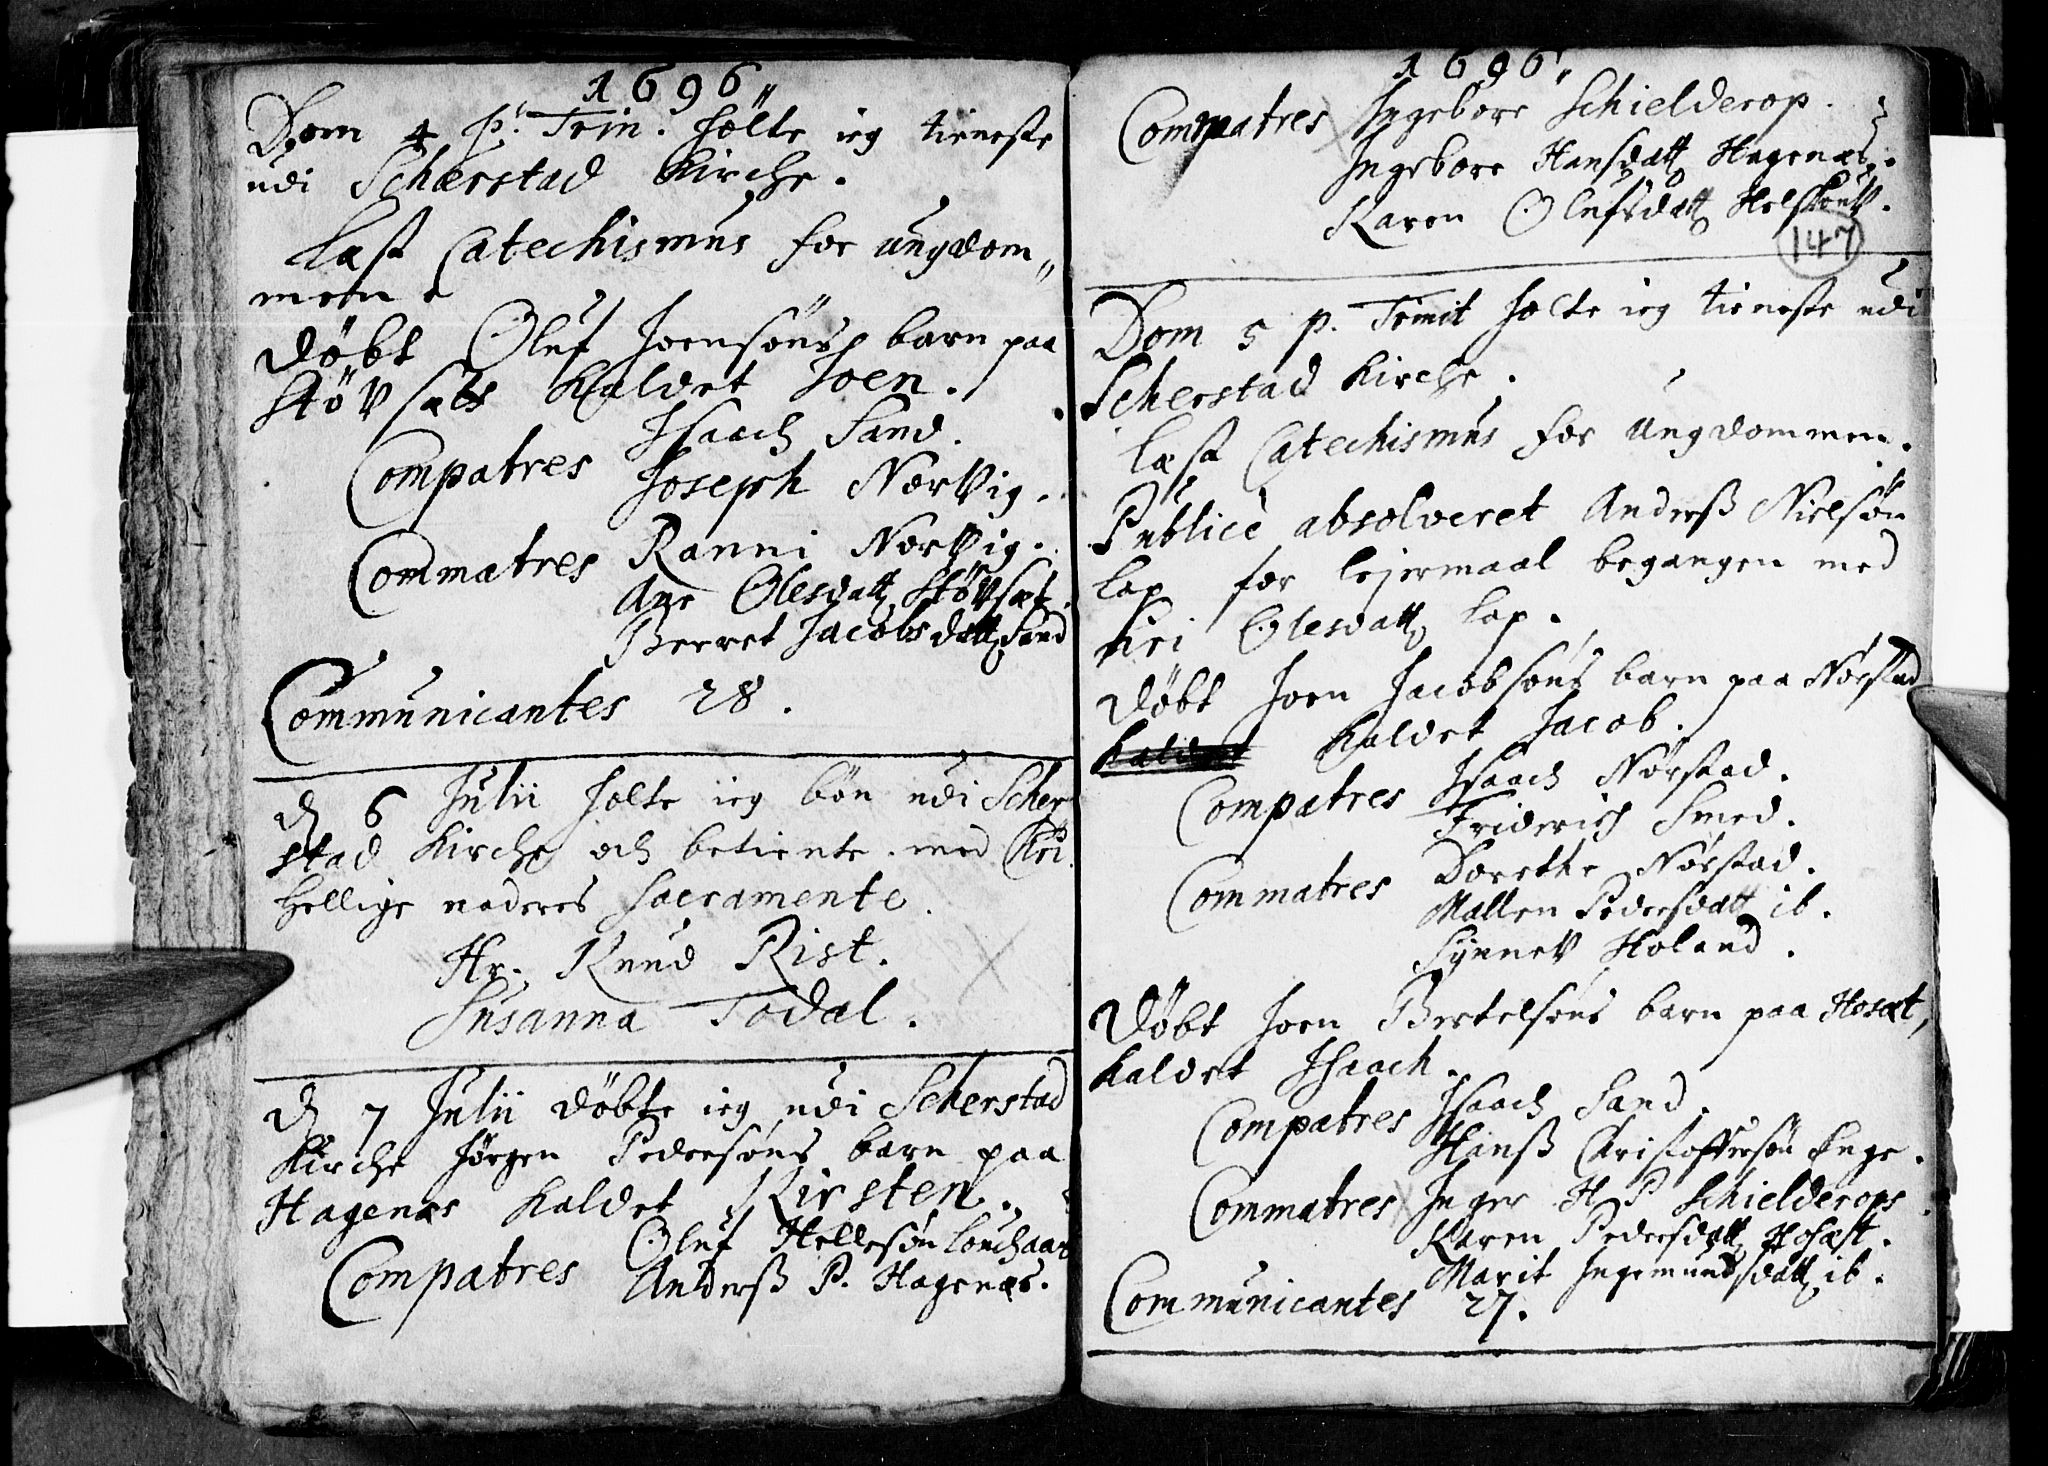 1696
Dom 4 p. Trin. holte ieg tieneste
udi Schærstad Kirche.
Læst Catechismus for ungdom„
men.
Døbt Oluf Joensøns barn paa
Støvsæts Kaldet Joen.
Isaach Sand.
Compatres Joseph Nærvig.
Commatres Ranni Nærvig.
Ane Olesdatt Støvsæt.
Berret Jacobsdatt Sand
Communicantes 28.
d 6 Julii holte ieg bøn udi Scher„
stad Kirche och betiente med
hellige naderes Sacramente.
Hr. Knud Rist.
Susanna Todal.
d 7 Julii døbte ieg udi Scherstad
Kirche Jørgen Pedersøns barn paa
Hagenæs kaldet Kirsten.
Oluf Hellesøn
Compatres Anderß P. Hagenæs.
1696
Compatres Ingebore Schielderop.
Ingebore Hansdatt Hagenæs.
Karen Olufsdatt
147
Dom 5 p. Trinit holte ieg tieneste udi
Scherstad Kirche.
læst Catechismus for Ungdommen.
Publicè absolveret Anderß Nielsøn
Lap for lejermaal begangen med
Siri Olesdatt Lap.
Døbt Joen Jacobsøns barn paa Nørstad
kaldet Kaldet Jacob.
Isaach Nørstad.
Compatres Friderich Smed.
Dorethe Nørstad.
Commatres Mallen Pedersdatt ib.
Synnev Holand.
Døbt Joen Bertelsøns barn paa Hosæt,
kaldet Isaach.
Isaach Sand.
Compatres Hanß Christoffersøn Enge.
Commatres Inger H P Schielderops
Karen Pedersdatt Hosæt.
Marit Ingemundsdatt ib.
Communicantes 27.